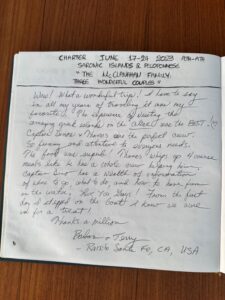 CHARTER JUNE 17-24 2023
SARONIC ISLANDS & PELOPONNESE
"THE McCLANAHAN FAMILY:
THREE WONDERFUL COUPLES"
Wow! What a wonderful trip! I have to say
in all my years of traveling it was my
favorite. The experience of visiting the
amazing greek islands on the was the BEST!
Captain Dinos + were the perfect crew.
So funny and attentive to everyones needs.
The food was superb! whips up 4 course
meals like he has a whole crew helping him.
Captain has a wealth of information
of where to go, what to do, and how to have fun
on the water. From the first
day I stepped on the boat I knew we were
in for a treat!
Thanks a million
+ Terry
- Santa Fe, CA, USA